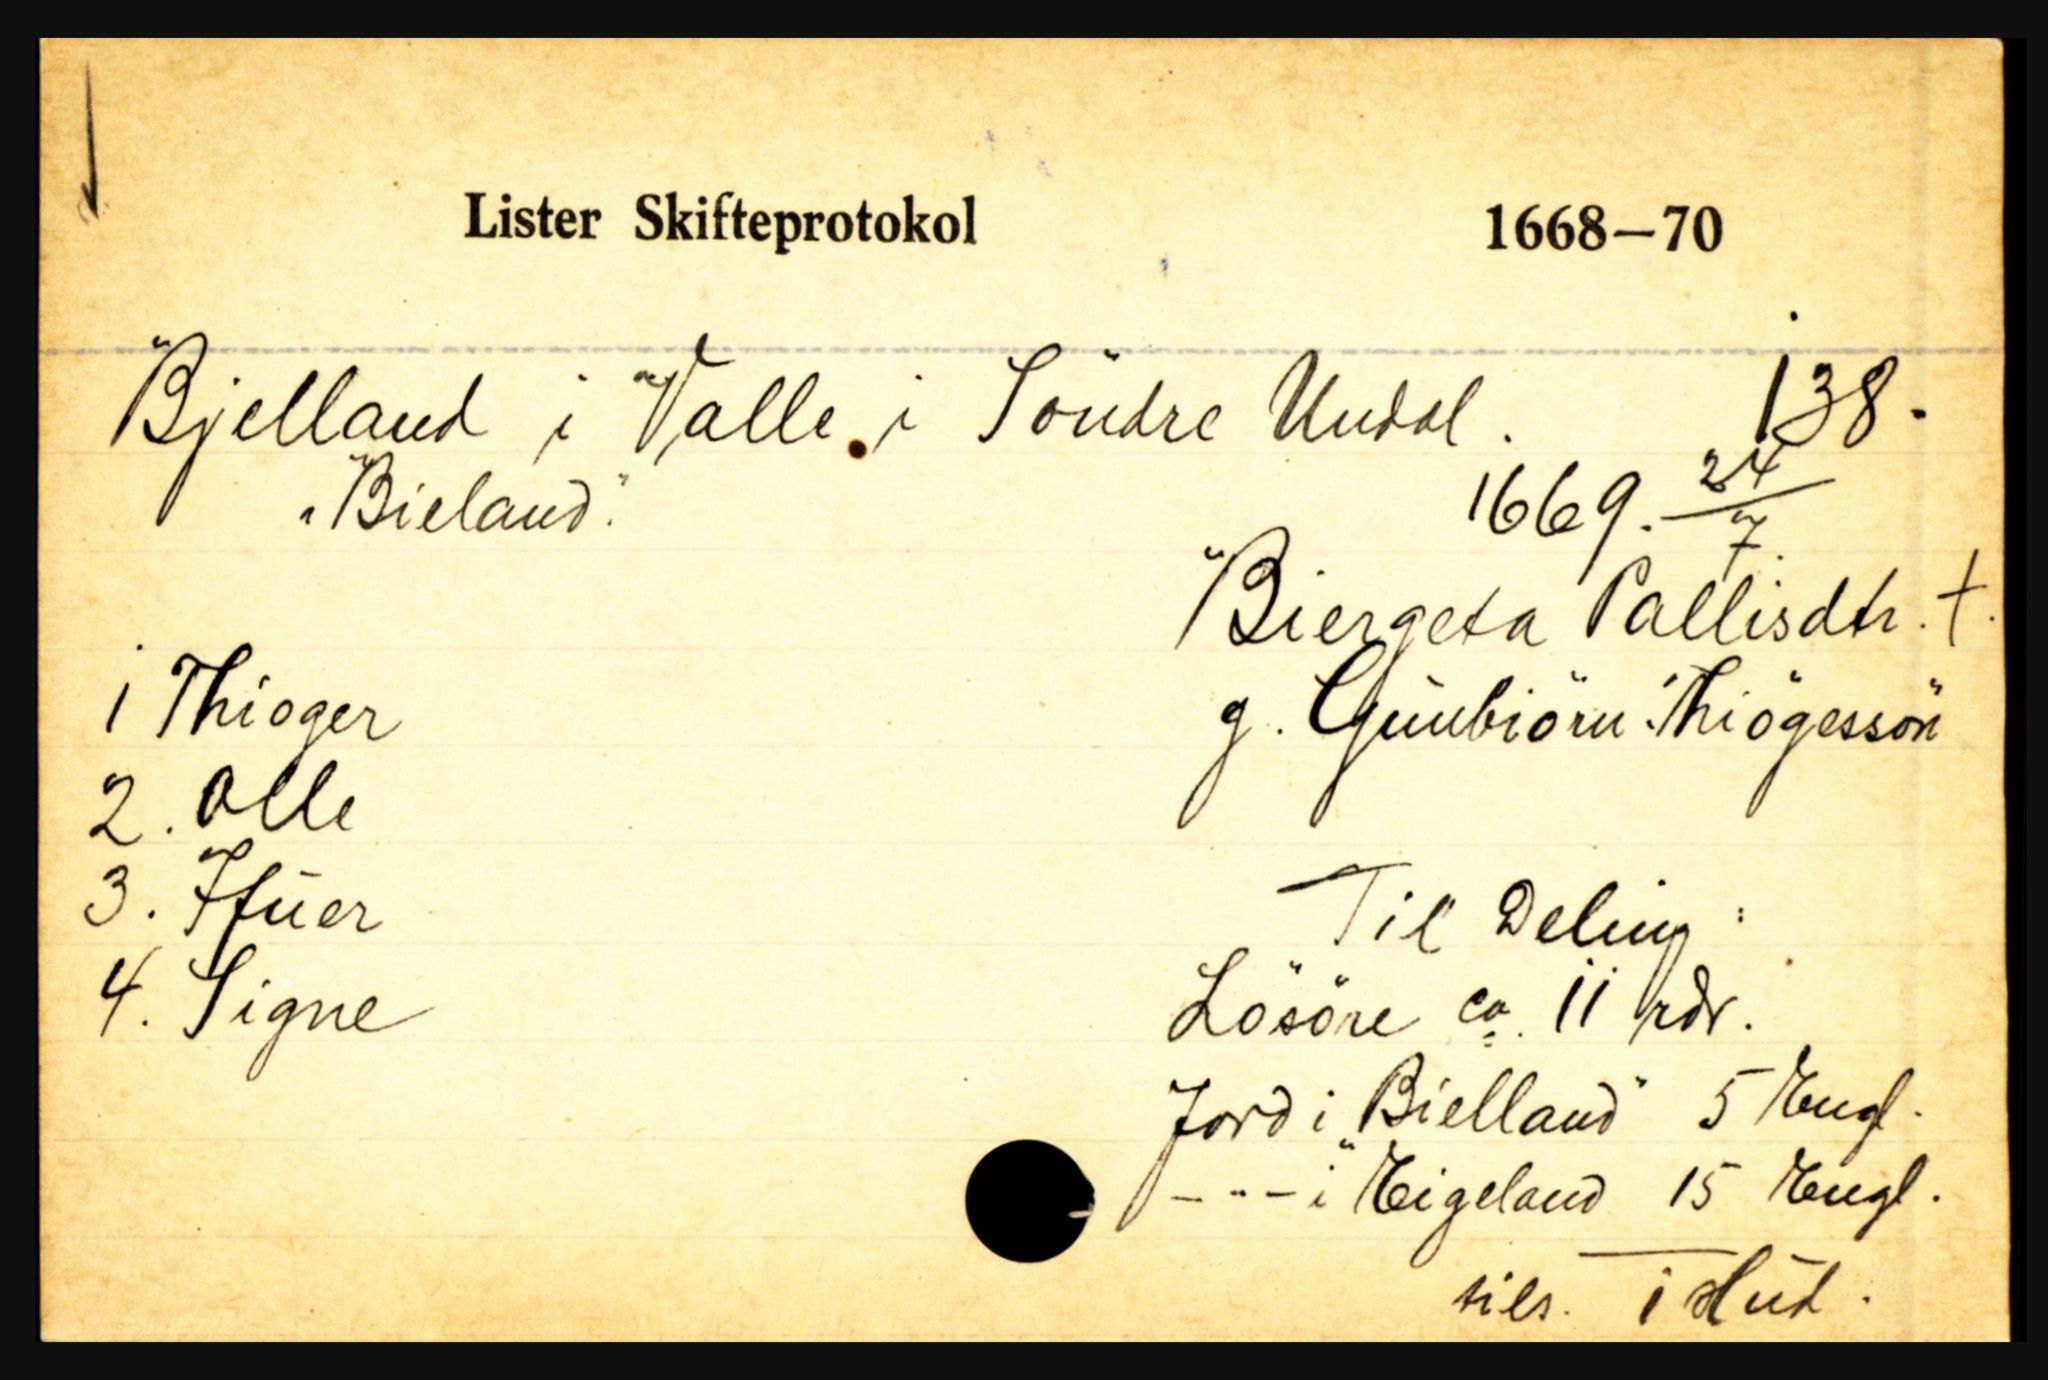 Lister Skifteprotokol 1668—70
Bjelland i Valle i Söndre Undal. 138.
"Bieland." 1669. 24/7.
Biergeta Pallisdtr. †.
1 Thioger g. Gunbiörn Thiögessön
2. Olle
3. Ifuer Til Deling:
4. Signe Lösöre ca. 11 rdr.
Jord i "Bielland" 5 Engl.
— " — i "Eigeland 15 Engl.
tils. 1 Hud.